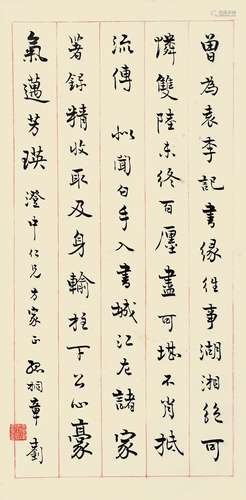 曾為袁李記書緣往事湖湘絕可
憐雙陸未終百廛盡可堪不肖抵
流傳 似聞白手入書城江左諸家
著錄精收取及身輸柱下公心豪
氣邁芳瑛 澄中仁兄方家正 孤桐章釗